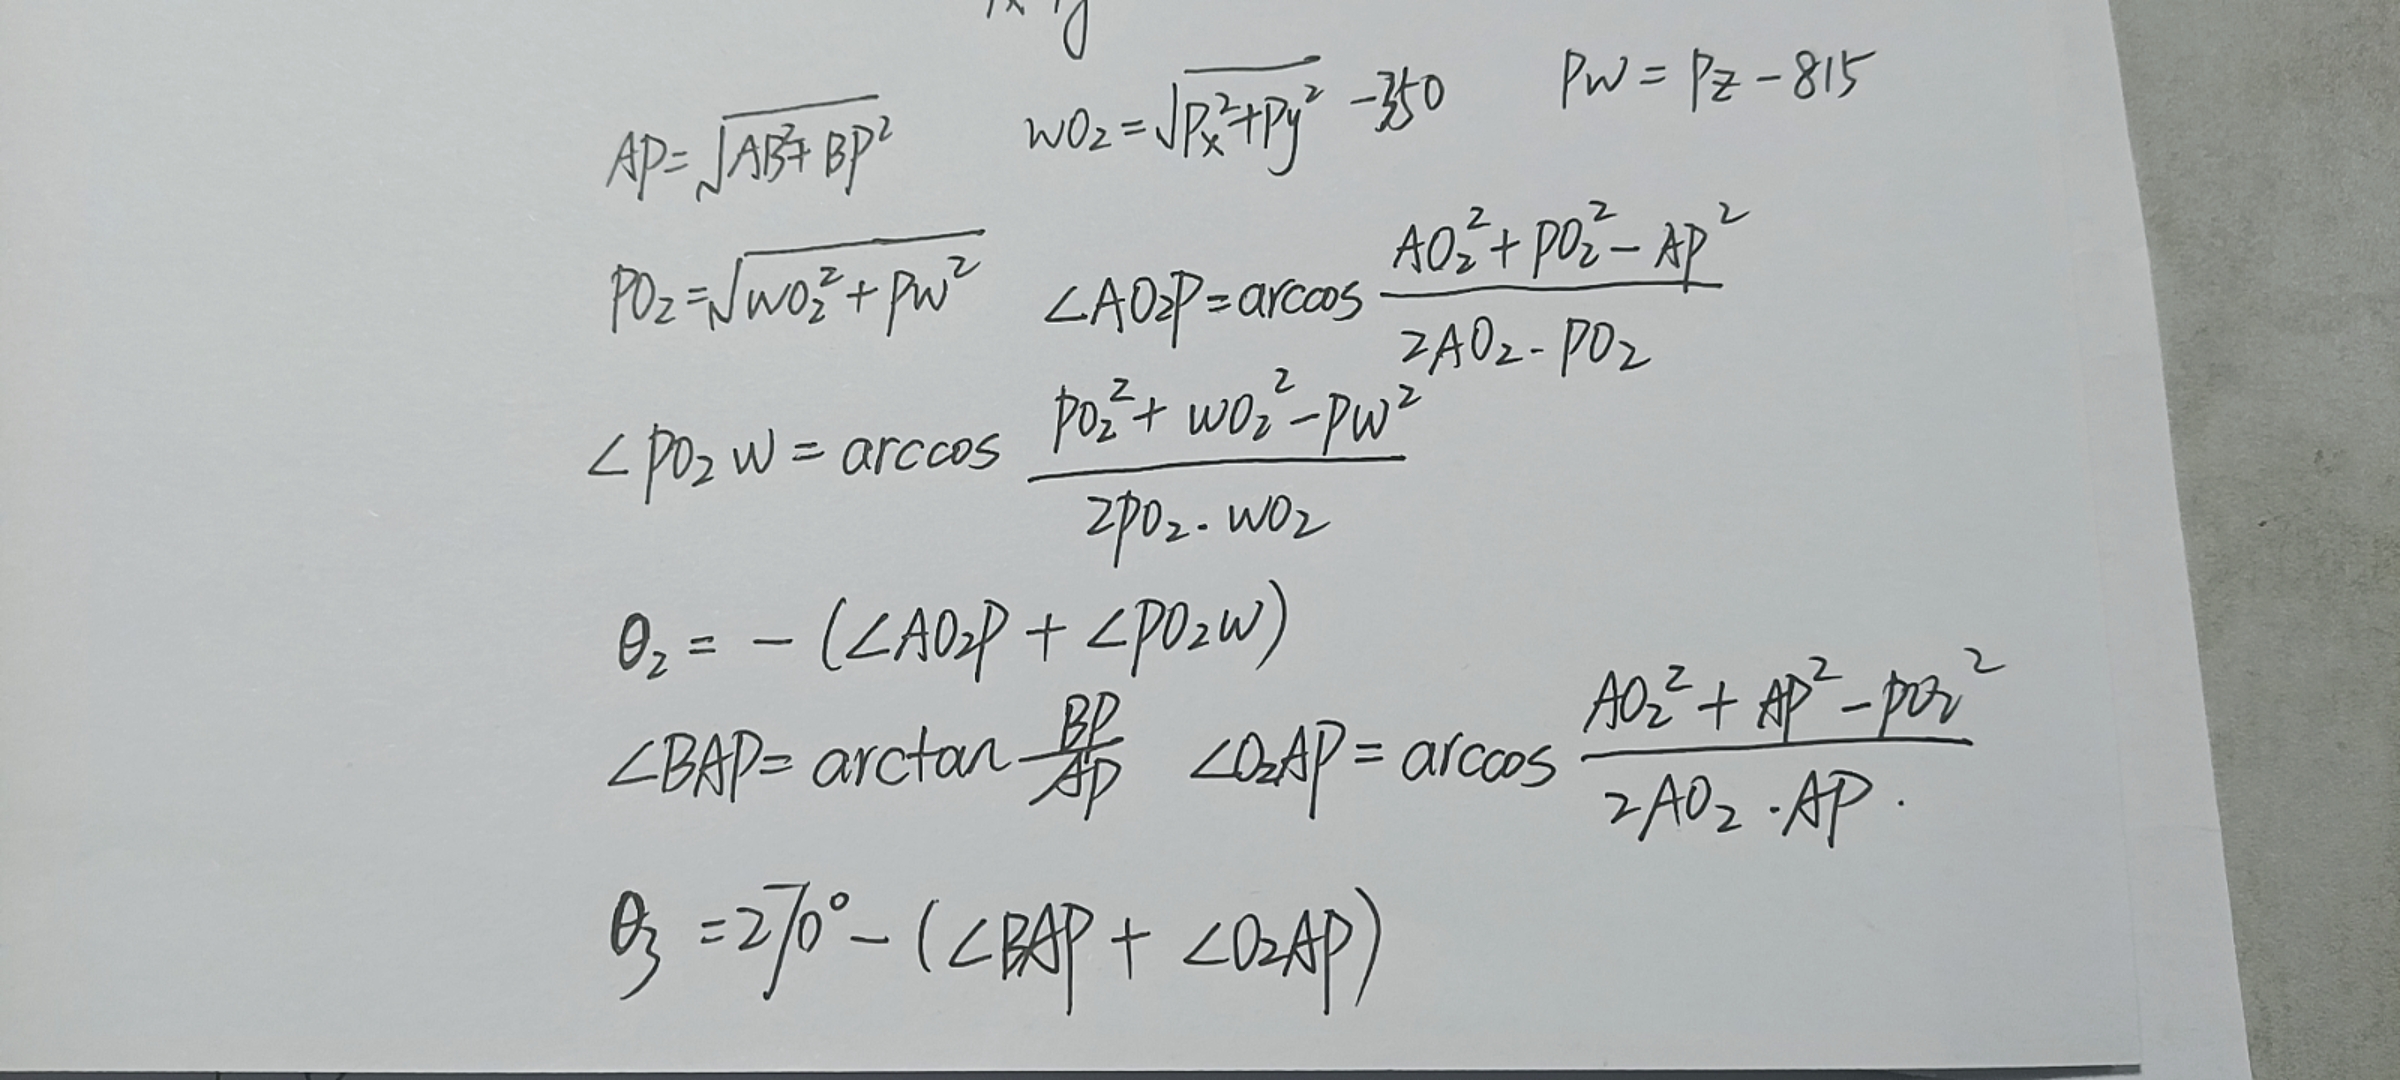 AP=√(AB²+BP²) WO₂=√(Px²+Py²) -350 PW=Pz-815
PO₂=√(WO₂²+PW²) ∠AO₂P=arccos (AO₂²+PO₂²-AP²)/(2AO₂·PO₂)
∠PO₂W=arccos (PO₂²+WO₂²-PW²)/(2PO₂·WO₂)
θ₂=-(∠AO₂P+∠PO₂W)
∠BAP=arctan BP/AP ∠O₂AP=arccos (AO₂²+AP²-PO₂²)/(2AO₂·AP).
θ₃=270°-(∠BAP+∠O₂AP)